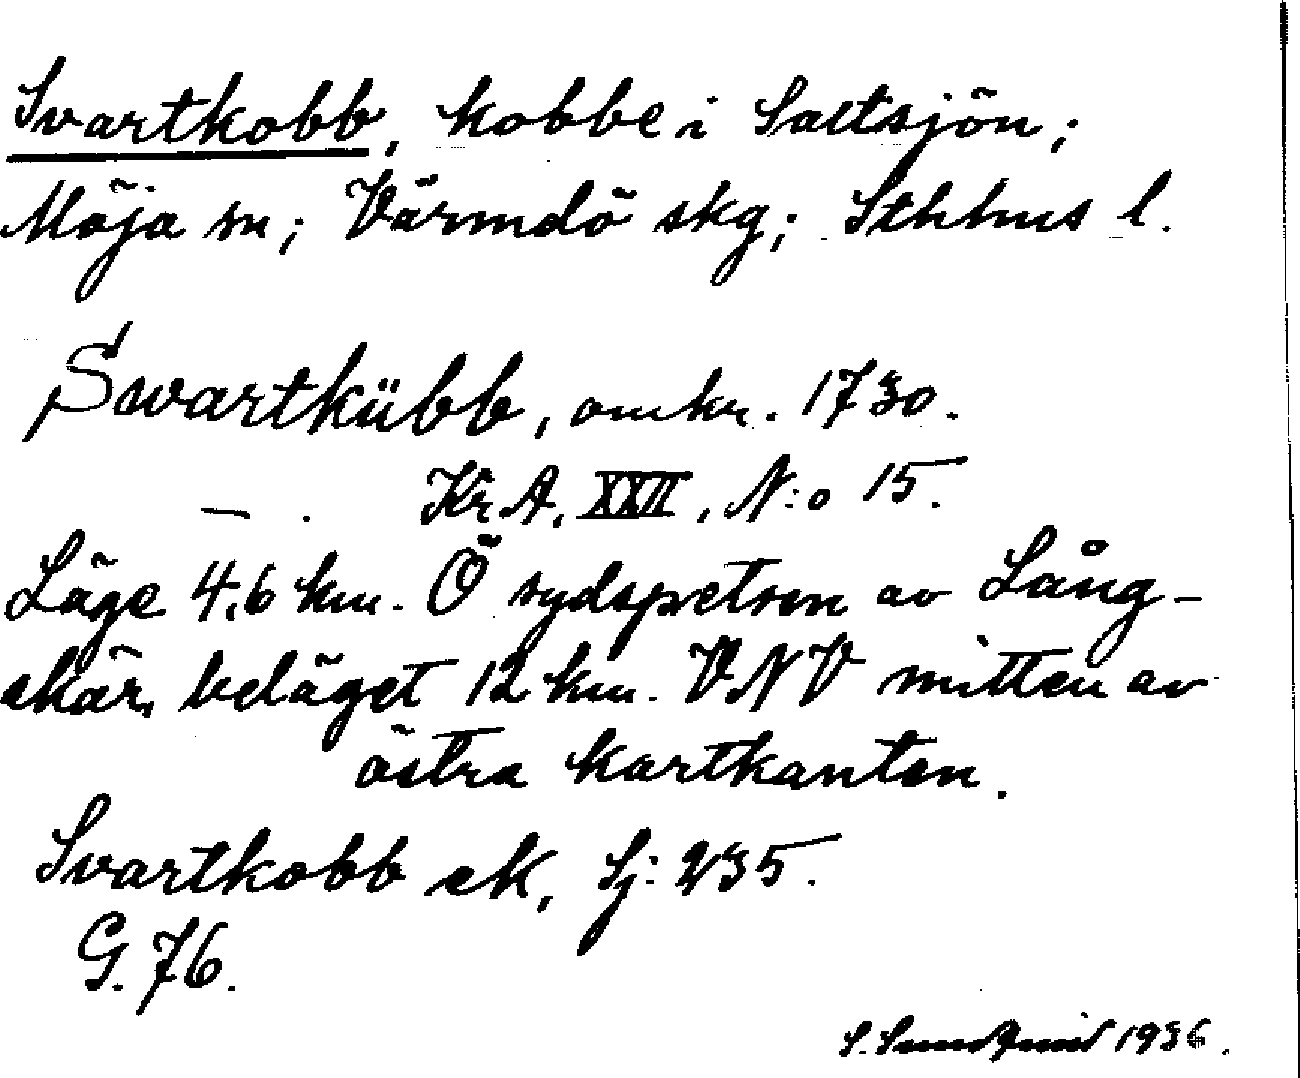 Svartkobb, kobbe i Saltsjön;
Möja sn; Värmdö skg; Sthlms l.
Swartkübb, omkr. 1730.
— . Kr A, XXII, N:o 15.
Läge 4,6 km. Ö sydspetsen av Lång-
skär, beläget 12 km. VNV mitten av
östra kartkanten.
Svartkobb ek, Sj: 235.
G. 76.
S. Sundqvist 1936.